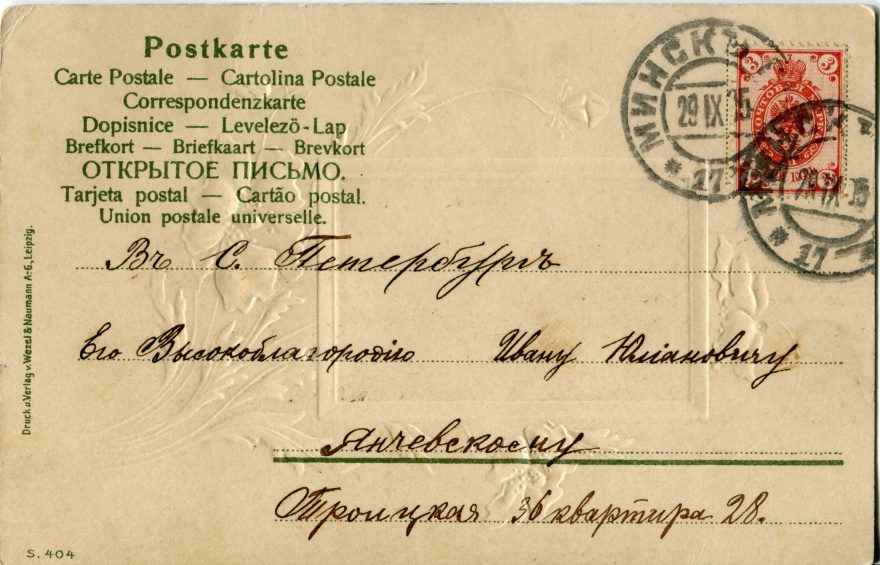 Postkarte
Carte Postale — Cartolina Postale
Correspondenzkarte
Dopisnice — Levelezö-Lap
Brefkort — Briefkaart — Brevkort
ОТКРЫТОЕ ПИСЬМО.
Tarjeta postal — Cartão postal.
Union postale universelle.
МИНСКЪ
29 IX 05
17
3 3
Въ С. Петербургъ
Его Высокоблагородію Ивану Юліановичу
Янчевскому
Троицкая 36 квартира 28.
Druck u. Verlag v. Wezel & Naumann A-G, Leipzig.
S. 404